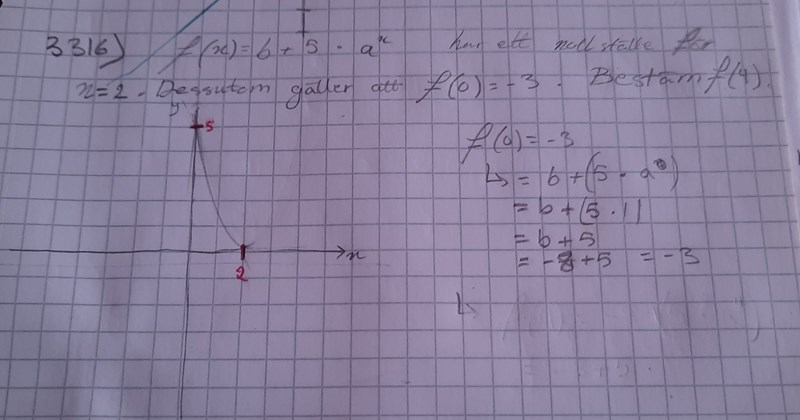 3316) f(x) = b + 5 · aˣ har ett nollställe för
x=2. Dessutom gäller att f(0) = -3. Bestäm f(4).
y
5
x
2
f(0) = -3
↳ = b + (5 · a⁰)
= b + (5 · 1)
= b + 5
= -8 + 5 = -3
↳